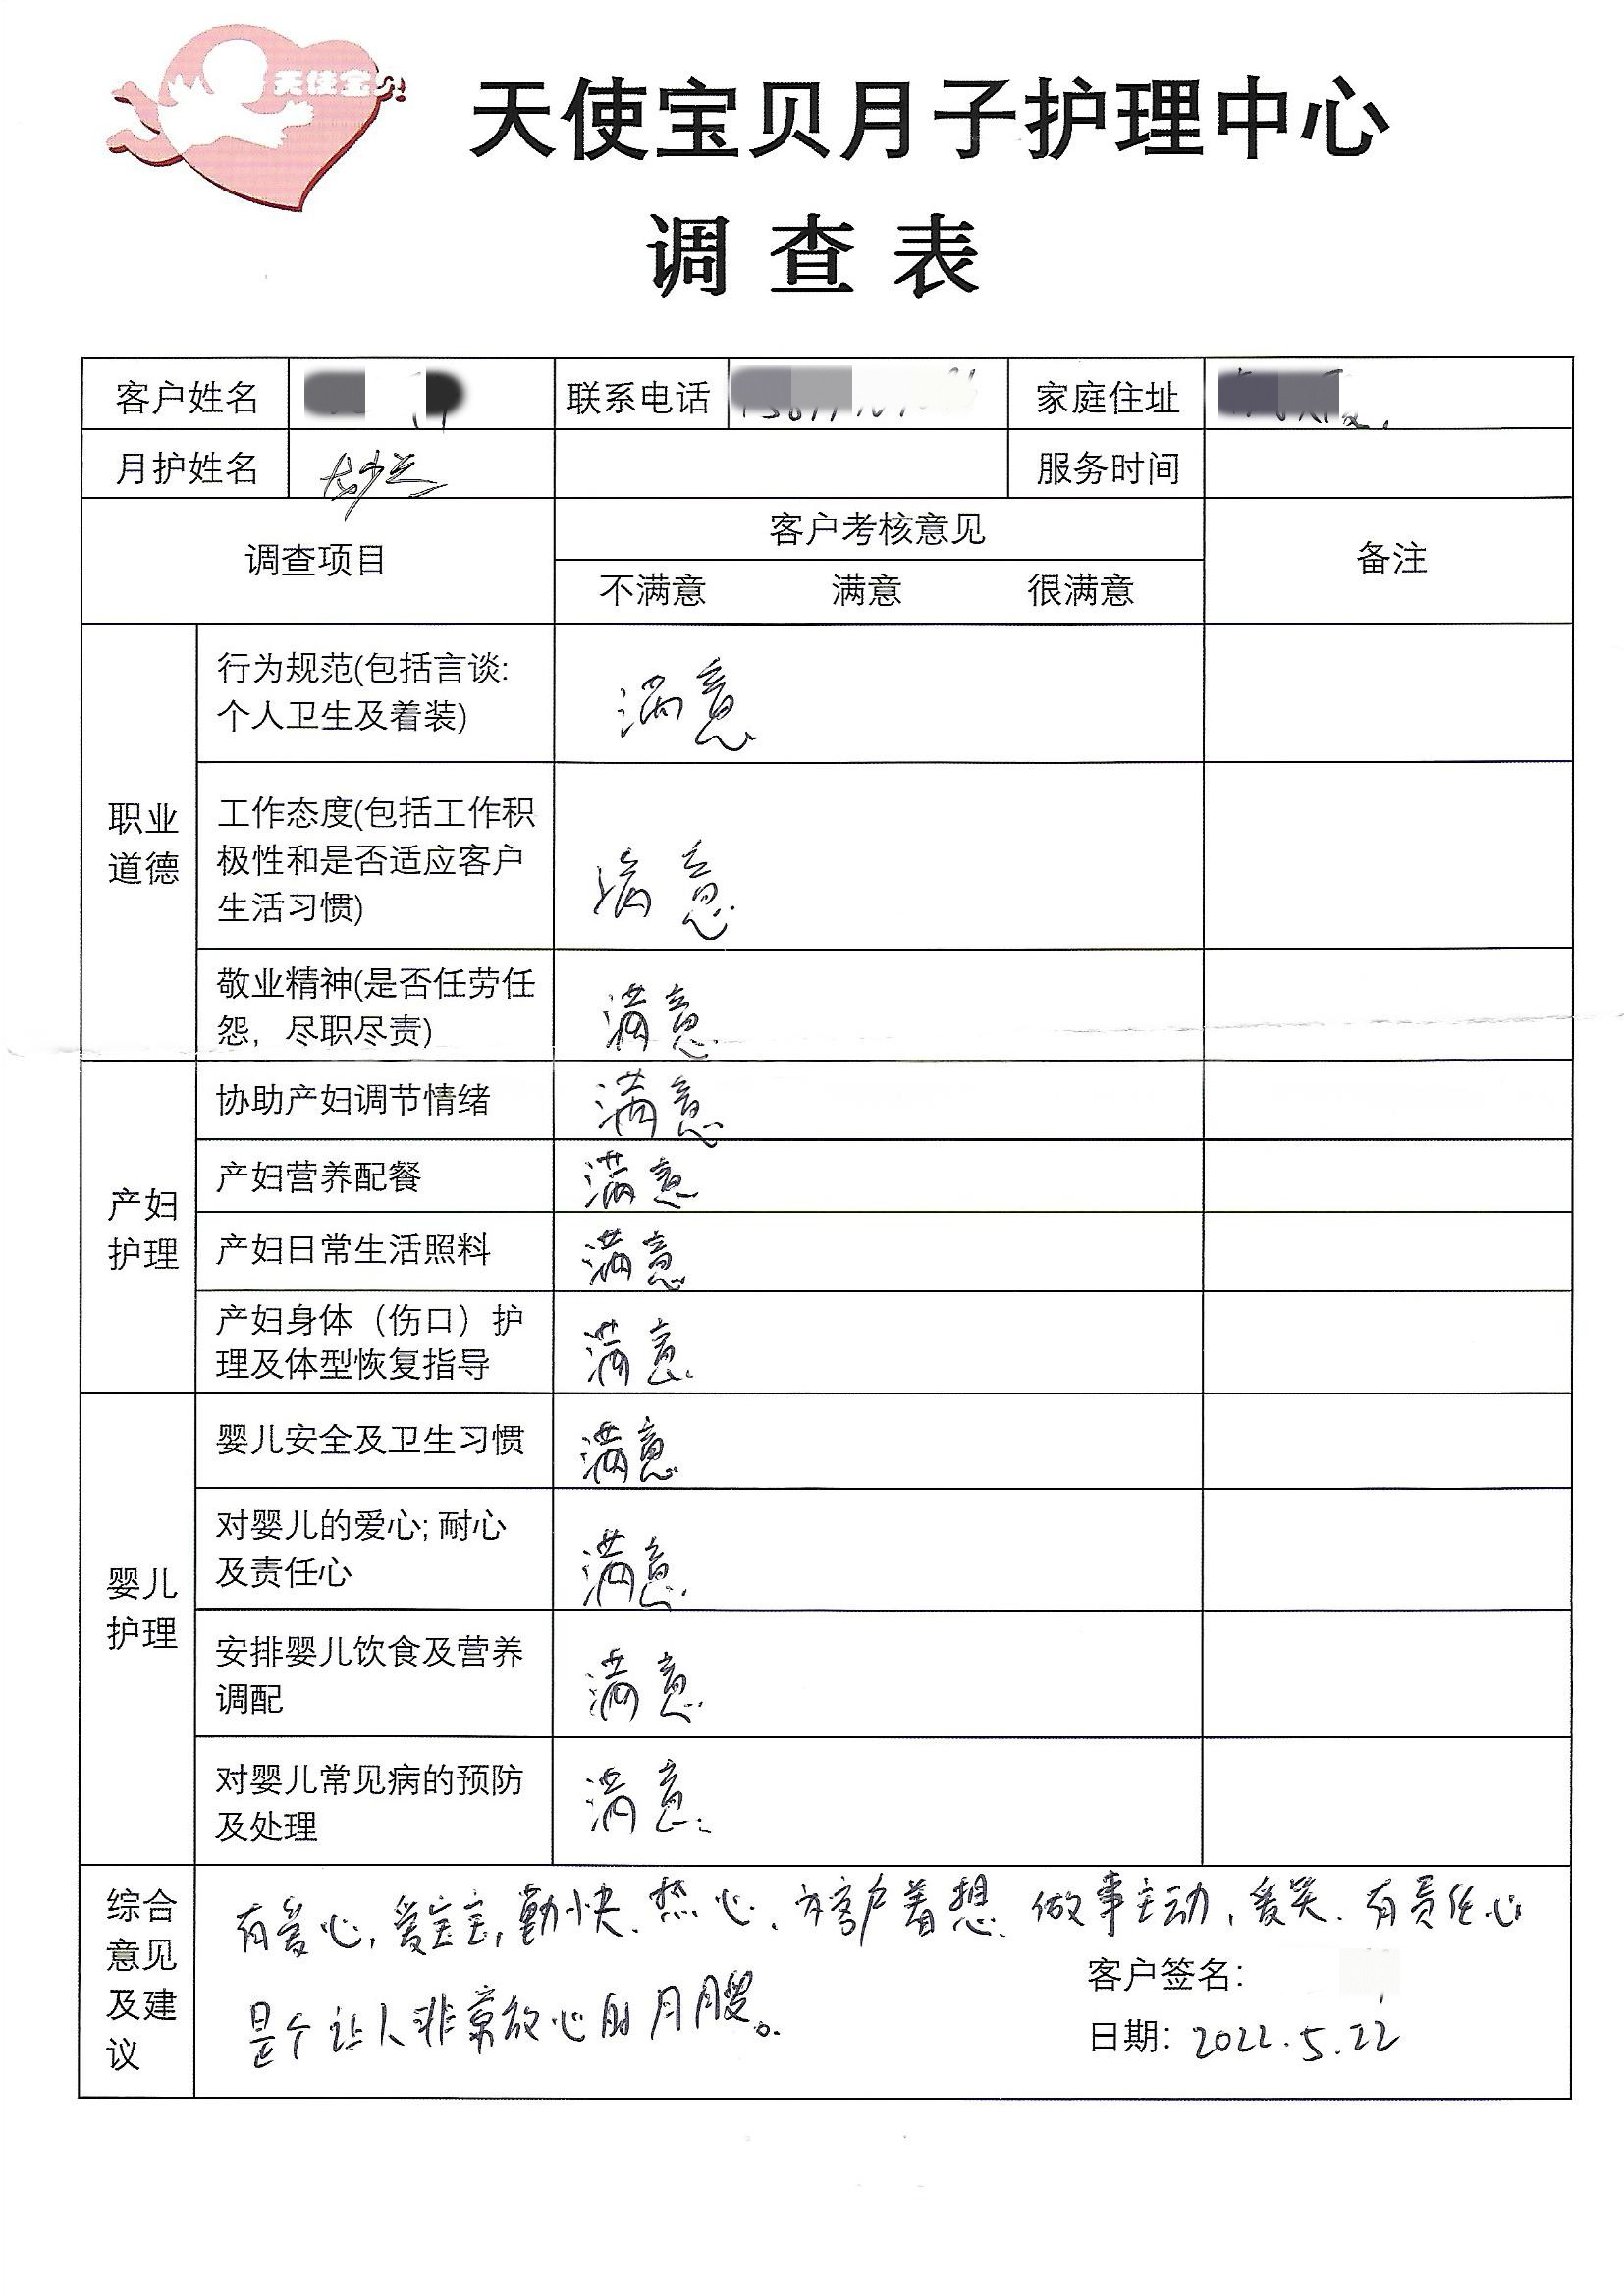 天使宝贝
天使宝贝月子护理中心
调查表
客户姓名 联系电话 家庭住址
月护姓名 服务时间
调查项目 客户考核意见 备注
不满意 满意 很满意
职业道德
行为规范(包括言谈:
个人卫生及着装) 满意
工作态度(包括工作积
极性和是否适应客户
生活习惯) 满意
敬业精神(是否任劳任
怨，尽职尽责) 满意
产妇护理
协助产妇调节情绪 满意
产妇营养配餐 满意
产妇日常生活照料 满意
产妇身体（伤口）护
理及体型恢复指导 满意.
婴儿护理
婴儿安全及卫生习惯 满意
对婴儿的爱心; 耐心
及责任心 满意.
安排婴儿饮食及营养
调配 满意
对婴儿常见病的预防
及处理 满意.
综合意见及建议
有爱心, 爱宝宝, 勤快、热心、为客户着想、做事主动, 爱笑、有责任心
是个让人非常放心的月嫂。
客户签名:
日期: 2022.5.22